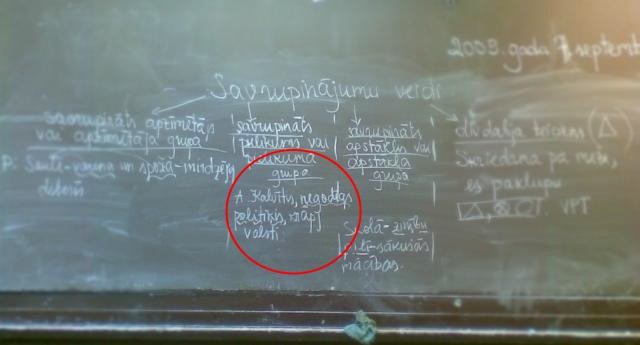 2009. gada 7. septembr
Savrupinājumu veidi
savrupināts apzīmētājs
vai apzīmētāja grupa
P: Skaļi-
un spoža-mirdzēja
debesīs
savrupināts
pielikums vai
pielikuma
grupa
A. Kalvītis, negodīgs
politiķis, māņ
valsti.
savrupināts
apstāklis vai
apstākļa
grupa
Skolā-zinību
pilī-sākušās
mācības.
divdabja teiciens (Δ)
Skriedama pa
es paklupu
VPT